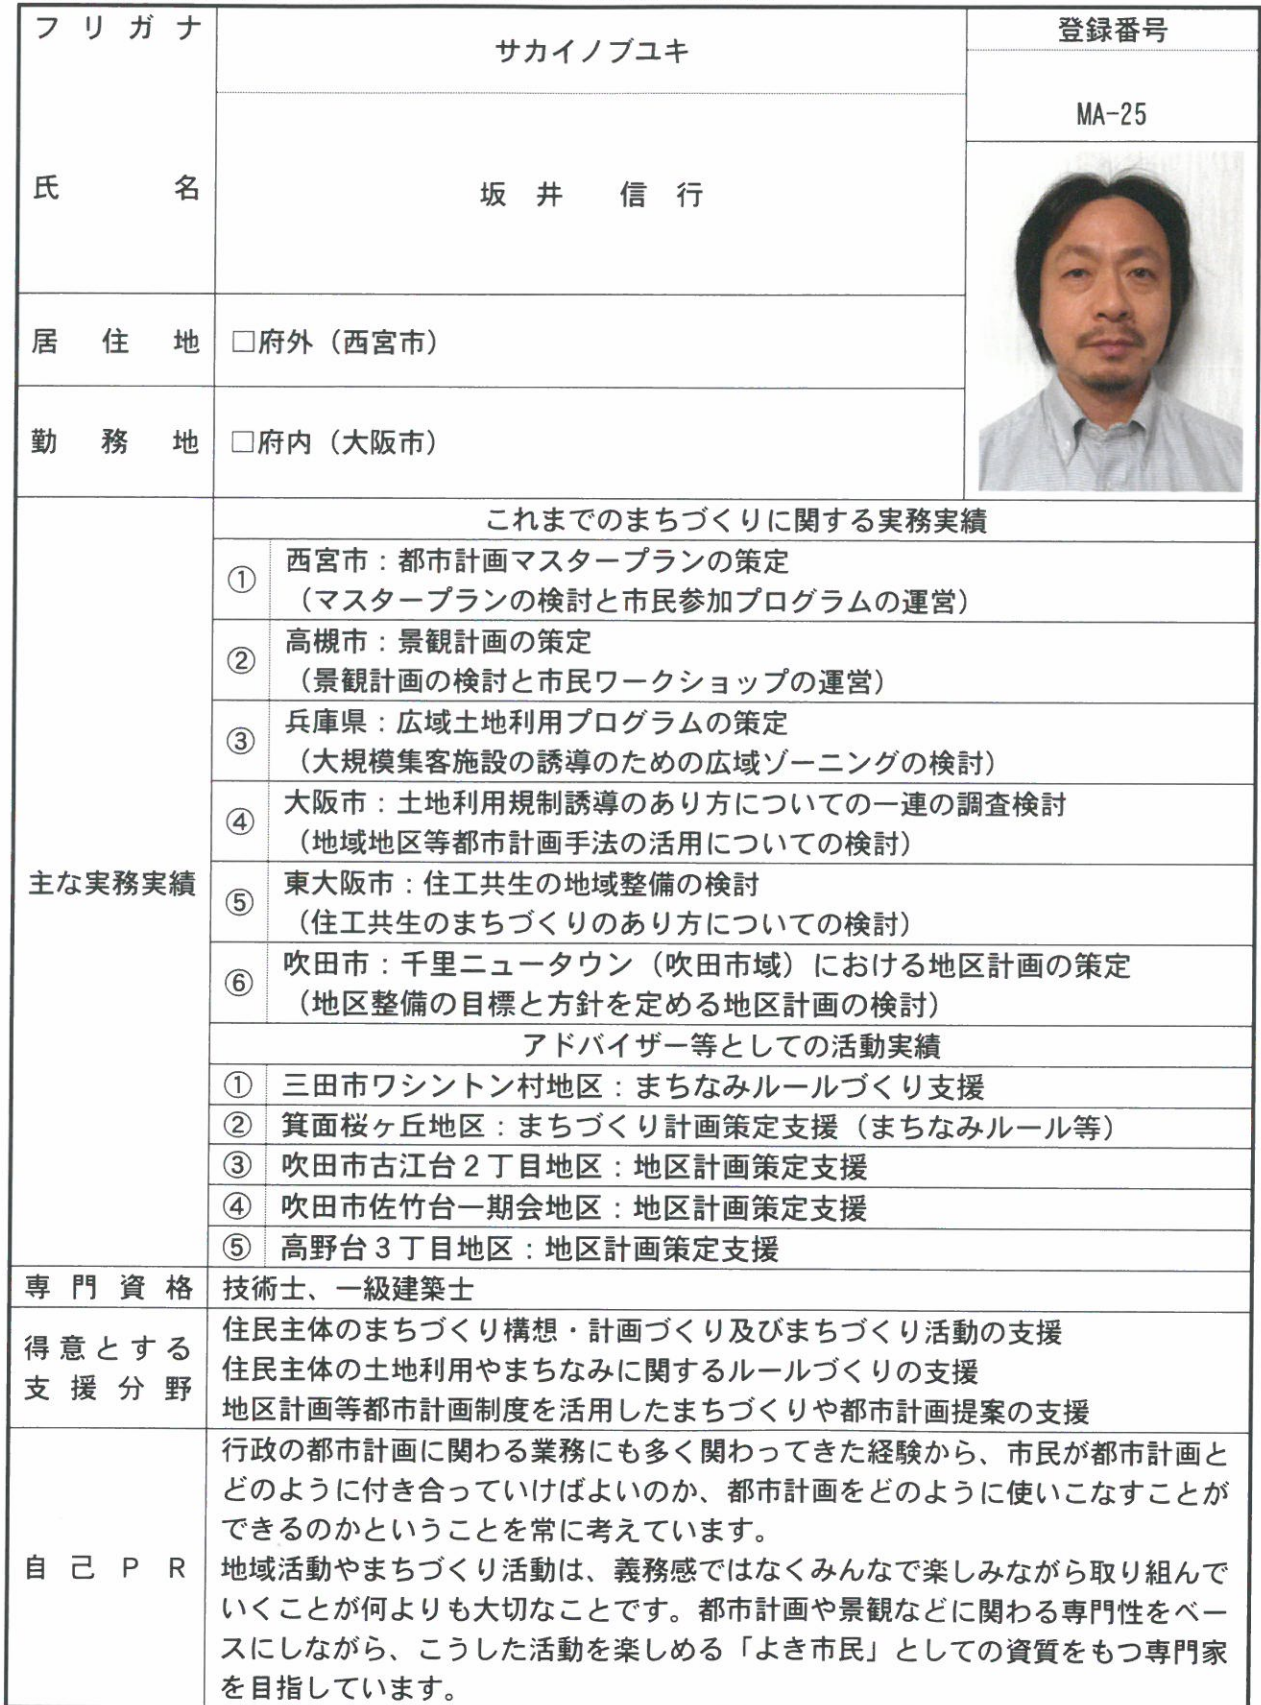 フリガナ
サカイノブユキ
登録番号
MA-25
氏名
坂井 信行
居住地
□府外（西宮市）
勤務地
□府内（大阪市）
主な実務実績
これまでのまちづくりに関する実務実績
① 西宮市：都市計画マスタープランの策定
（マスタープランの検討と市民参加プログラムの運営）
② 高槻市：景観計画の策定
（景観計画の検討と市民ワークショップの運営）
③ 兵庫県：広域土地利用プログラムの策定
（大規模集客施設の誘導のための広域ゾーニングの検討）
④ 大阪市：土地利用規制誘導のあり方についての一連の調査検討
（地域地区等都市計画手法の活用についての検討）
⑤ 東大阪市：住工共生の地域整備の検討
（住工共生のまちづくりのあり方についての検討）
⑥ 吹田市：千里ニュータウン（吹田市域）における地区計画の策定
（地区整備の目標と方針を定める地区計画の検討）
アドバイザー等としての活動実績
① 三田市ワシントン村地区：まちなみルールづくり支援
② 箕面桜ヶ丘地区：まちづくり計画策定支援（まちなみルール等）
③ 吹田市古江台２丁目地区：地区計画策定支援
④ 吹田市佐竹台一期会地区：地区計画策定支援
⑤ 高野台３丁目地区：地区計画策定支援
専門資格
技術士、一級建築士
得意とする
支援分野
住民主体のまちづくり構想・計画づくり及びまちづくり活動の支援
住民主体の土地利用やまちなみに関するルールづくりの支援
地区計画等都市計画制度を活用したまちづくりや都市計画提案の支援
自己ＰＲ
行政の都市計画に関わる業務にも多く関わってきた経験から、市民が都市計画と
どのように付き合っていけばよいのか、都市計画をどのように使いこなすことが
できるのかということを常に考えています。
地域活動やまちづくり活動は、義務感ではなくみんなで楽しみながら取り組んで
いくことが何よりも大切なことです。都市計画や景観などに関わる専門性をベー
スにしながら、こうした活動を楽しめる「よき市民」としての資質をもつ専門家
を目指しています。